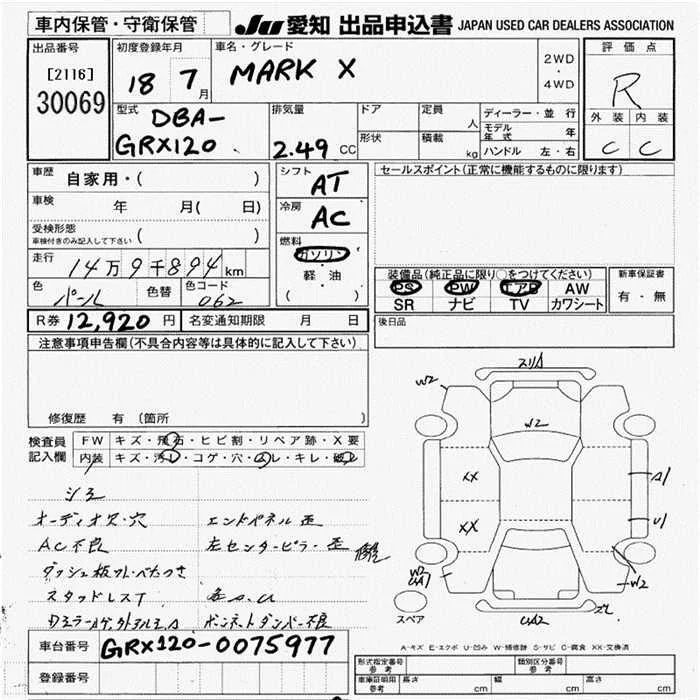 車内保管・守衛保管
JU 愛知 出品申込書 JAPAN USED CAR DEALERS ASSOCIATION
出品番号
[2116]
30069
初度登録年月
18 7月
車名・グレード
MARK X
2WD
・
4WD
評価点
R
外装 内装
C C
型式
DBA-
GRX120
排気量
2.49 CC
ドア
形状
定員 人
積載 kg
ディーラー・並行
モデル年式 年
ハンドル 左・右
車歴
自家用・( )
車検 年 月( 日)
受検形態
車検付きのみ記入して下さい ( )
走行
14万9千894km
色
パール
色替
色コード
062
シフト
AT
冷房
AC
燃料
ガソリン
・
軽・油
( )
セールスポイント(正常に機能するものに限ります)
装備品(純正品に限り○をつけてください)
PS PW エアB AW
SR ナビ TV カワシート
新車保証書
有・無
R券 12,920円
名変通知期限 月 日
後日品
注意事項申告欄(不具合内容等は具体的に記入して下さい)
修復歴 有 〔箇所
検査員
記入欄
FW キズ・飛石・ヒビ割・リペア跡・X要
内装 キズ・汚レ・コゲ・穴・スレ・キレ・破レ
シミ
オーディオ欠・穴 エンドパネル歪
AC不良 左センターピラー・歪 修復
ダッシュ板ワレ・べたつき
スタッドレスT
ボンネットダンパー不良
スリA
W2
W2
XX
XX
A1
U1
W2
W2
UA1
UA2
スペア
A-キズ E-エクボ U-凹み W-補修跡 S-サビ C-腐食 XX-交換済
車台番号
GRX120-0075977
登録番号
形式指定番号 参考
類別区分番号 参考
車庫証明用 参考
長さ cm
幅 cm
高さ cm